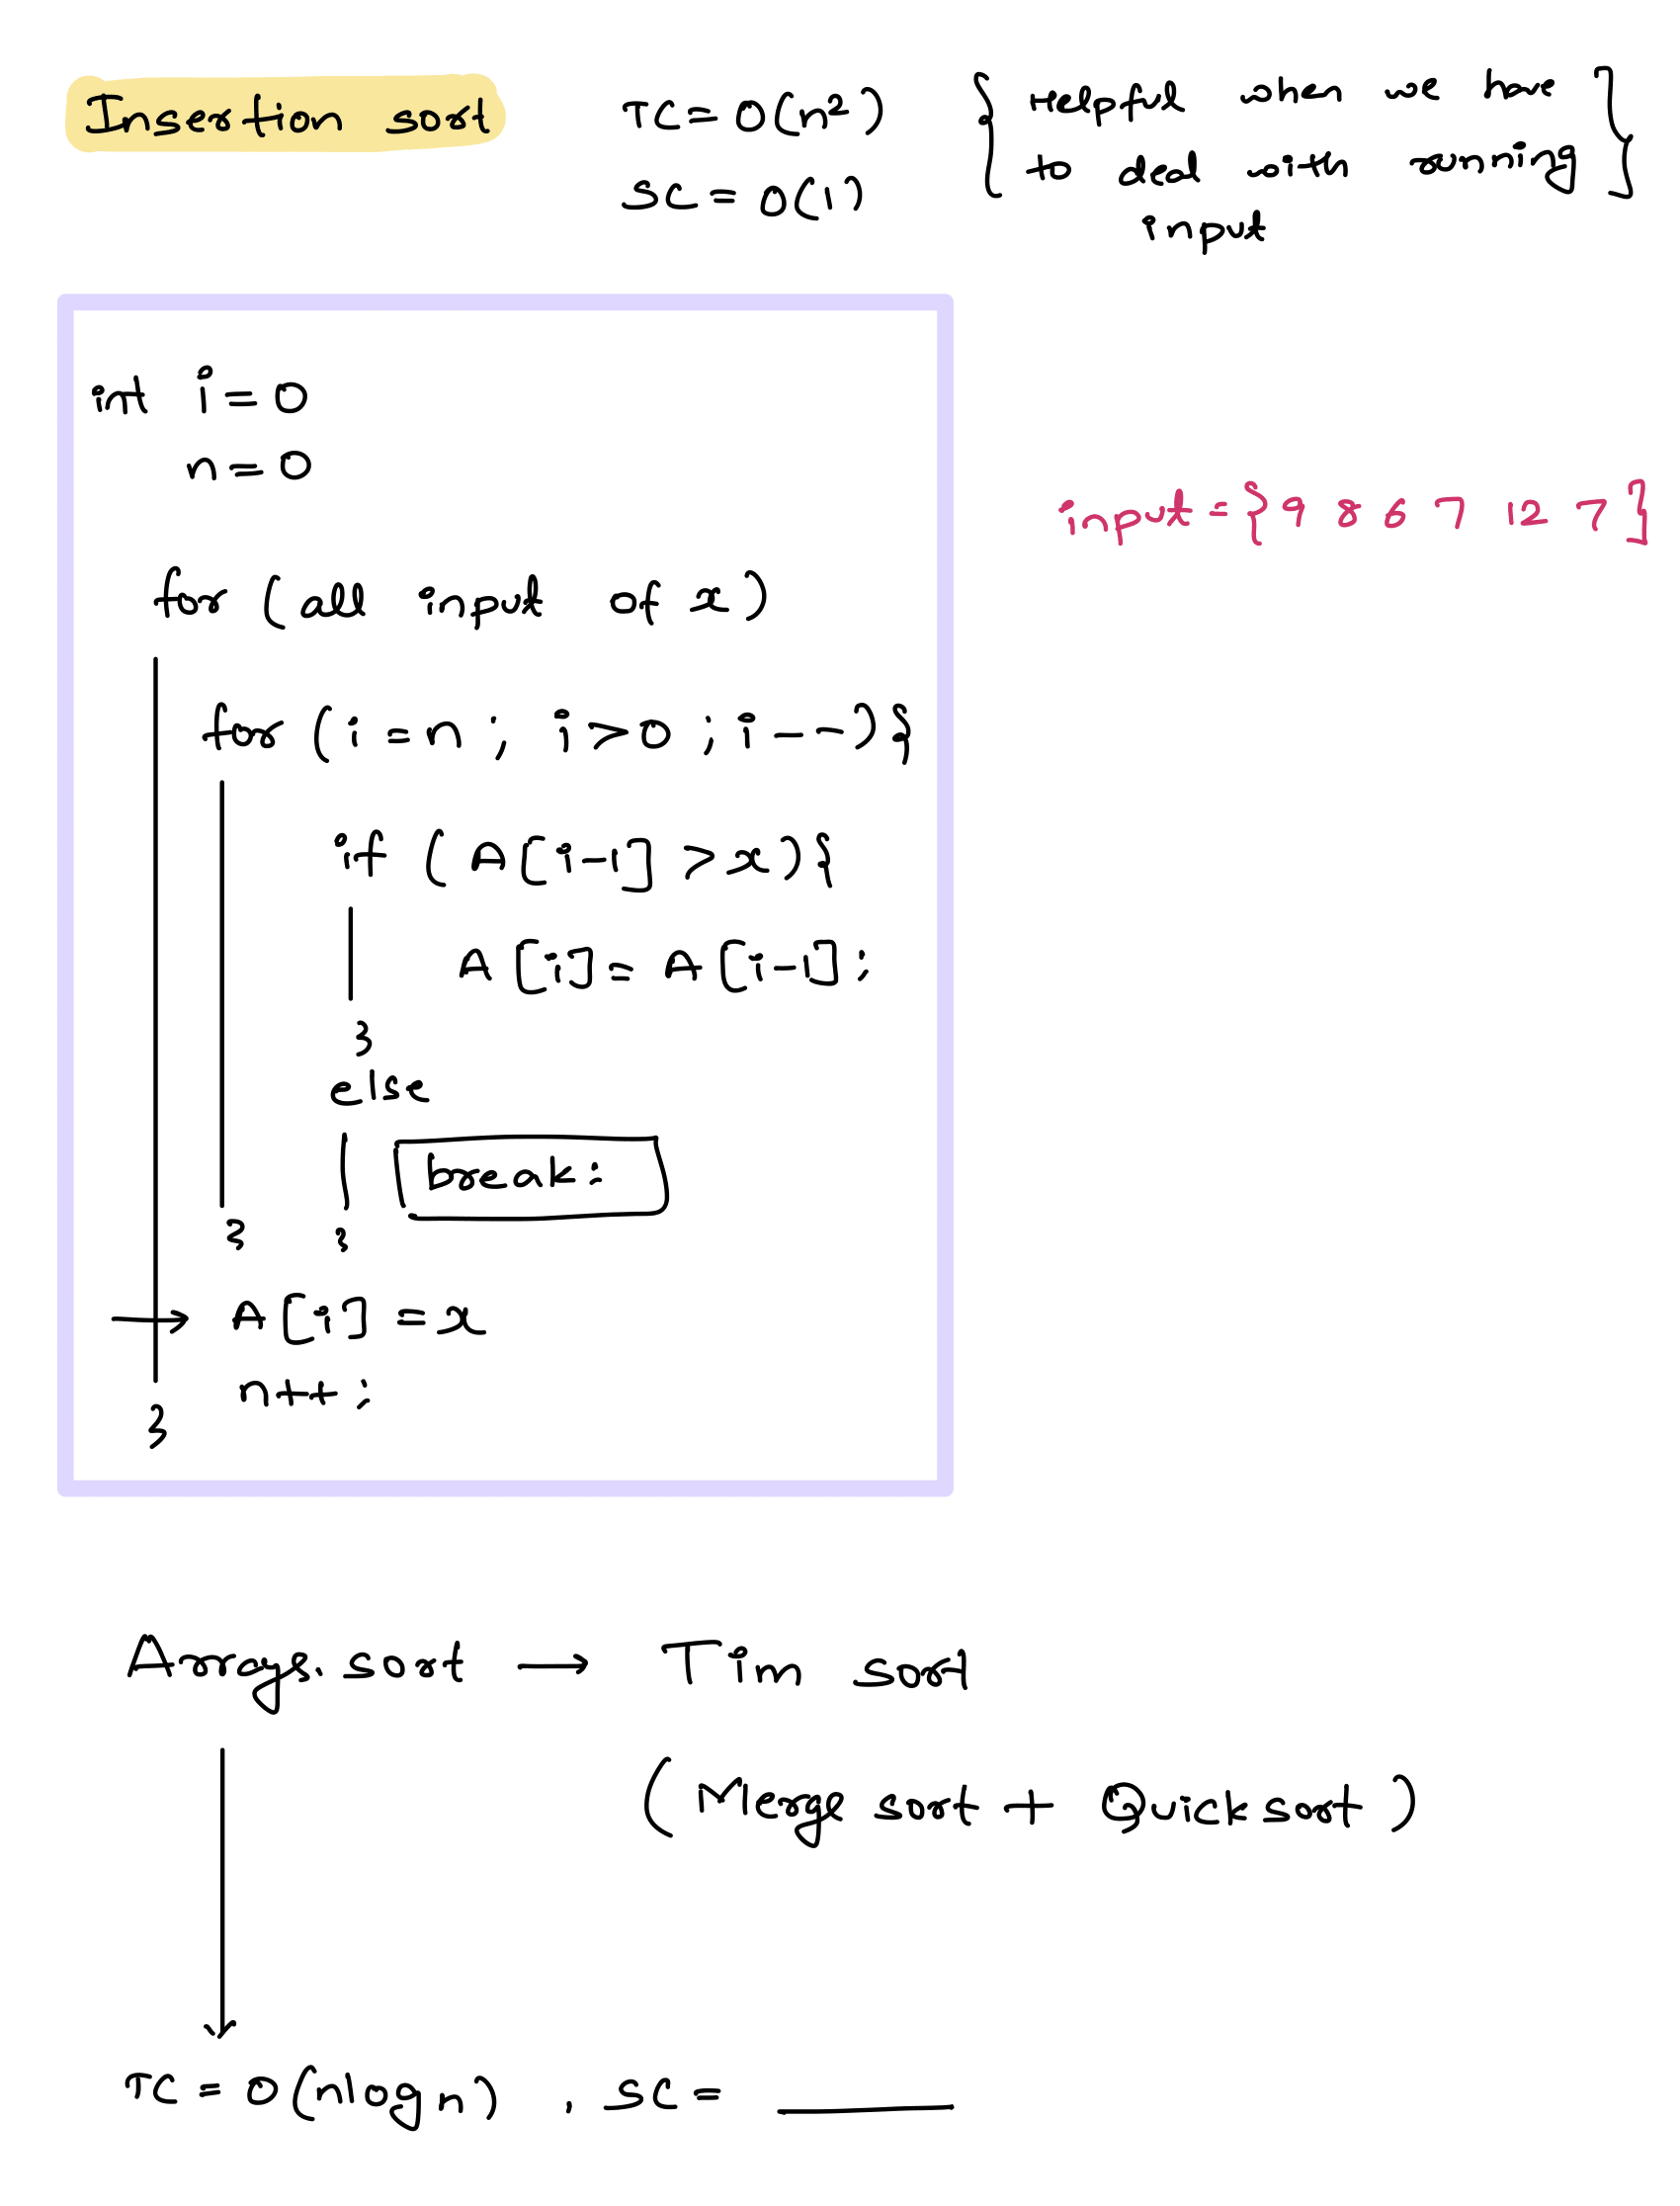 Insertion sort
TC = O(n²)
SC = O(1)
{ Helpful when we have
to deal with running }
input
int i = 0
n = 0
input = { 9 8 6 7 12 7 }
for (all input of x)
for (i = n ; i > 0 ; i--) {
if (A[i-1] > x) {
A[i] = A[i-1];
}
else
break;
}
}
→ A[i] = x
n++;
}
Arrays.sort → Tim sort
(Merge sort + Quick sort)
TC = O(nlogn) , SC = ______